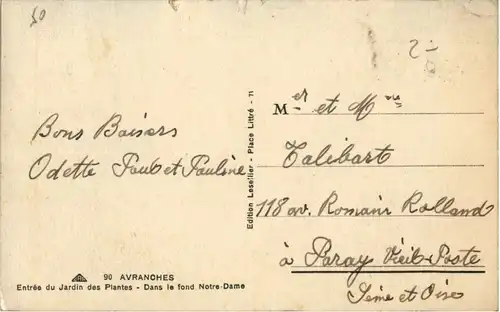 50
2-
Mer et Mme
Talibart
Bons Baisers
Odette Paul et Pauline
118 av. Romain Rolland
à Paray Vieil-Poste
Seine et Oise
Edition Leseiller - Place Littré - 71
90 AVRANCHES
Entrée du Jardin des Plantes - Dans le fond Notre-Dame